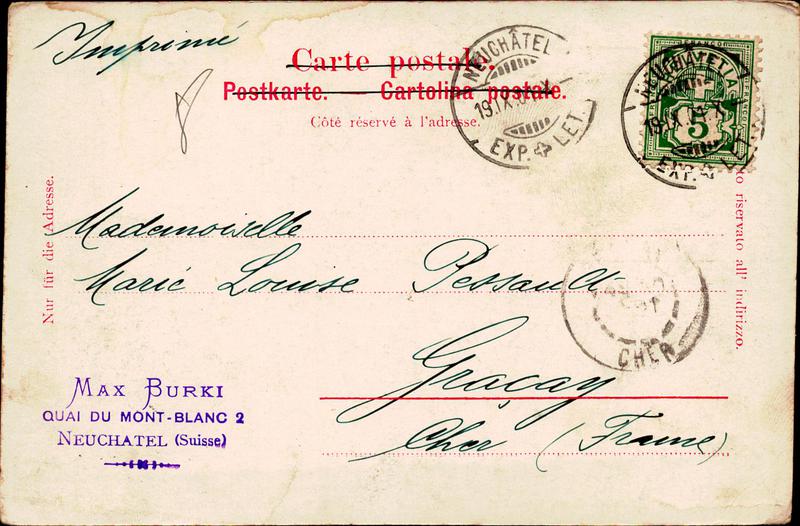 Imprimé
Carte postale.
Postkarte. — Cartolina postale.
Côté réservé à l'adresse.
NEUCHÂTEL
19.IX.04.X
EXP. LET.
NEUCHÂTEL
19.IX.04.X
EXP. LET.
5
FRANCO
Nur für die Adresse.
to riservato all' indirizzo.
Mademoiselle
Marie Louise Pessault
Graçay
Cher (France)
CHER
MAX BURKI
QUAI DU MONT-BLANC 2
NEUCHATEL (Suisse)